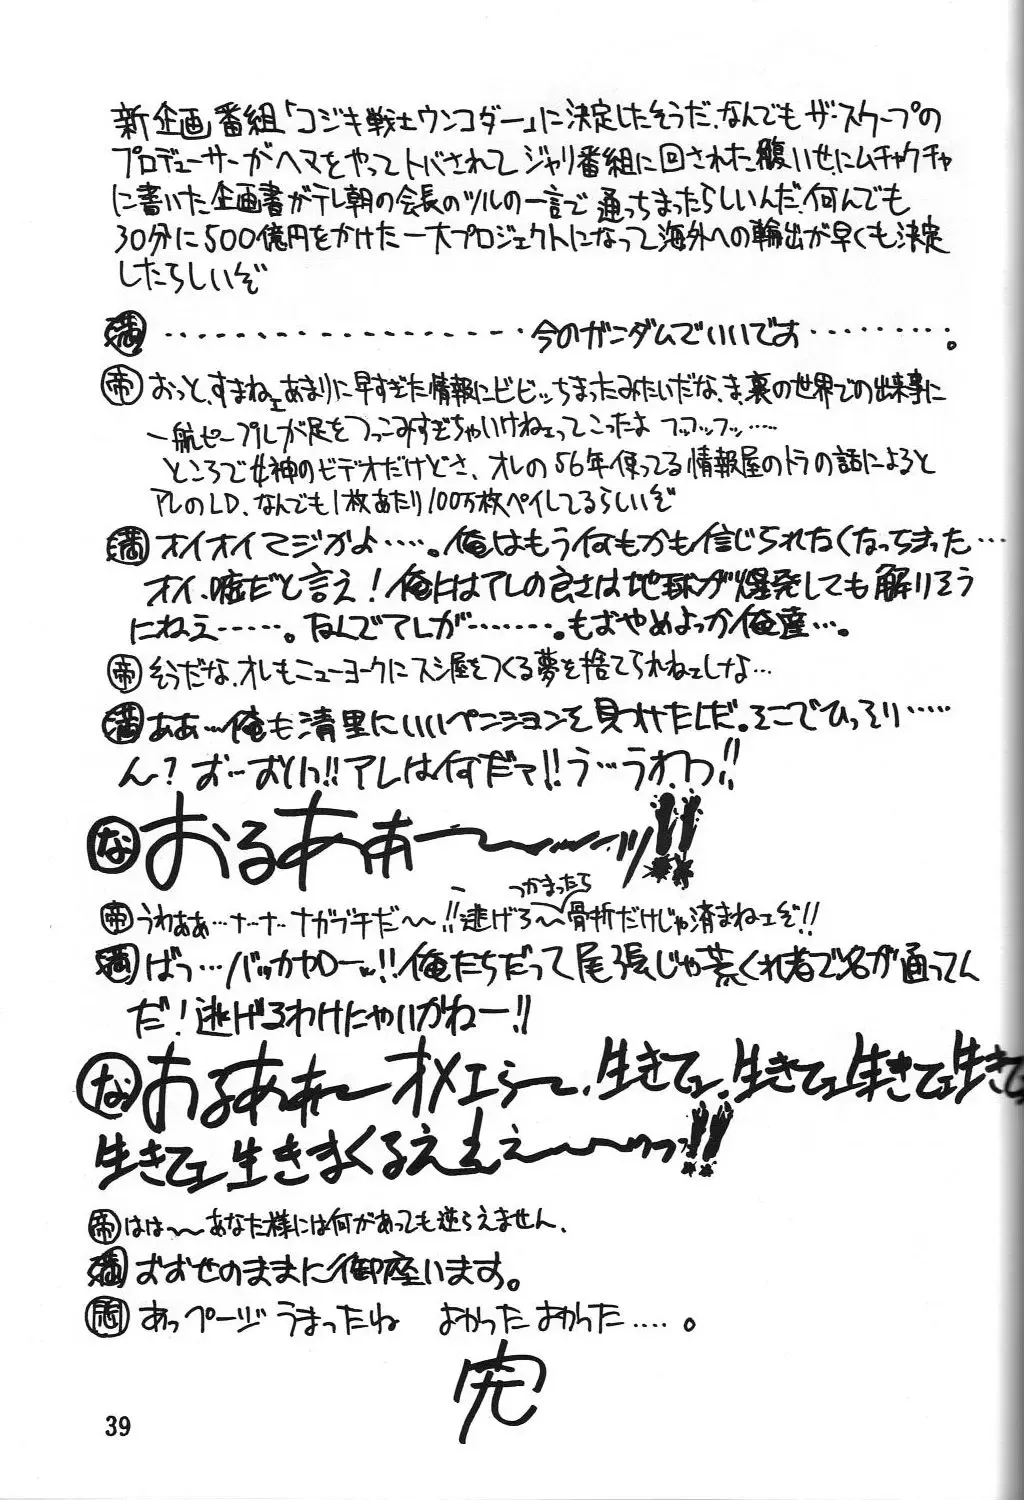 新企画番組「コジキ戦士ウンコダー」に決定したそうだ、なんでもザ・スクープの
プロデューサーがヘマをやってトバされてジャリ番組に回された腹いせにムチャクチャ
に書いた企画書がテレ朝の会長のツルの一言で通っちまったらしいんだ、何んでも
30分に500億円をかけた一大プロジェクトになって海外への輸出が早くも決定
したらしいぞ
満 ‥‥‥‥‥‥‥‥‥‥今のガンダムでいいです‥‥‥‥。
帝 おっと、すまねェあまりに早すぎた情報にビビッちまったみたいだな、ま、裏の世界での出来事に
一般ピープルが足をつっこみすぎちゃいけねェってこったよ フッフッフッ‥‥
ところで女神のビデオだけどさ、オレの56年使ってる情報屋のトラの話によると
アレのLD、なんでも1枚あたり100万枚ペイしてるらしいぞ
満 オイオイマジかよ‥‥。俺はもう何もかも信じられなくなっちまった‥‥
オイ、嘘だと言え!俺にはアレの良さは地球が爆発しても解りそう
にねえ‥‥‥。なんでアレが‥‥‥‥。もおやめよっか俺達‥‥。
帝 そうだな、オレもニューヨークにスシ屋をつくる夢を捨てられねェしなよ‥‥
満 ああ‥‥俺も清里にいいペンションを見つけたしだ。そこでひっそり‥‥‥
ん?おーおいっ!!アレは何だァ!!う‥‥うわっ!!
な おるあぁーーーッ!!
帝 うわぁぁ‥‥ナ‥ナ‥ナガブチだ〜〜!!逃げろ〜つかまったら骨折だけじゃ済まねェぞ!!
満 ばっ‥‥バッカヤローッ!!俺たちだって尾張じゃ荒くれ者で名が通ってん
だ!逃げるわけにゃいかねー!!
な おるああぁーオメェらー、生きてェ、生きてェ生きてェ生きて
生きてェ生きまくるえぇぇ〜〜ゥっっ!!
帝 はは〜〜あなた様には何があっても逆らえません、
満 おおせのままに御座います。
あっページうまったね よかったよかった‥‥。
完
39